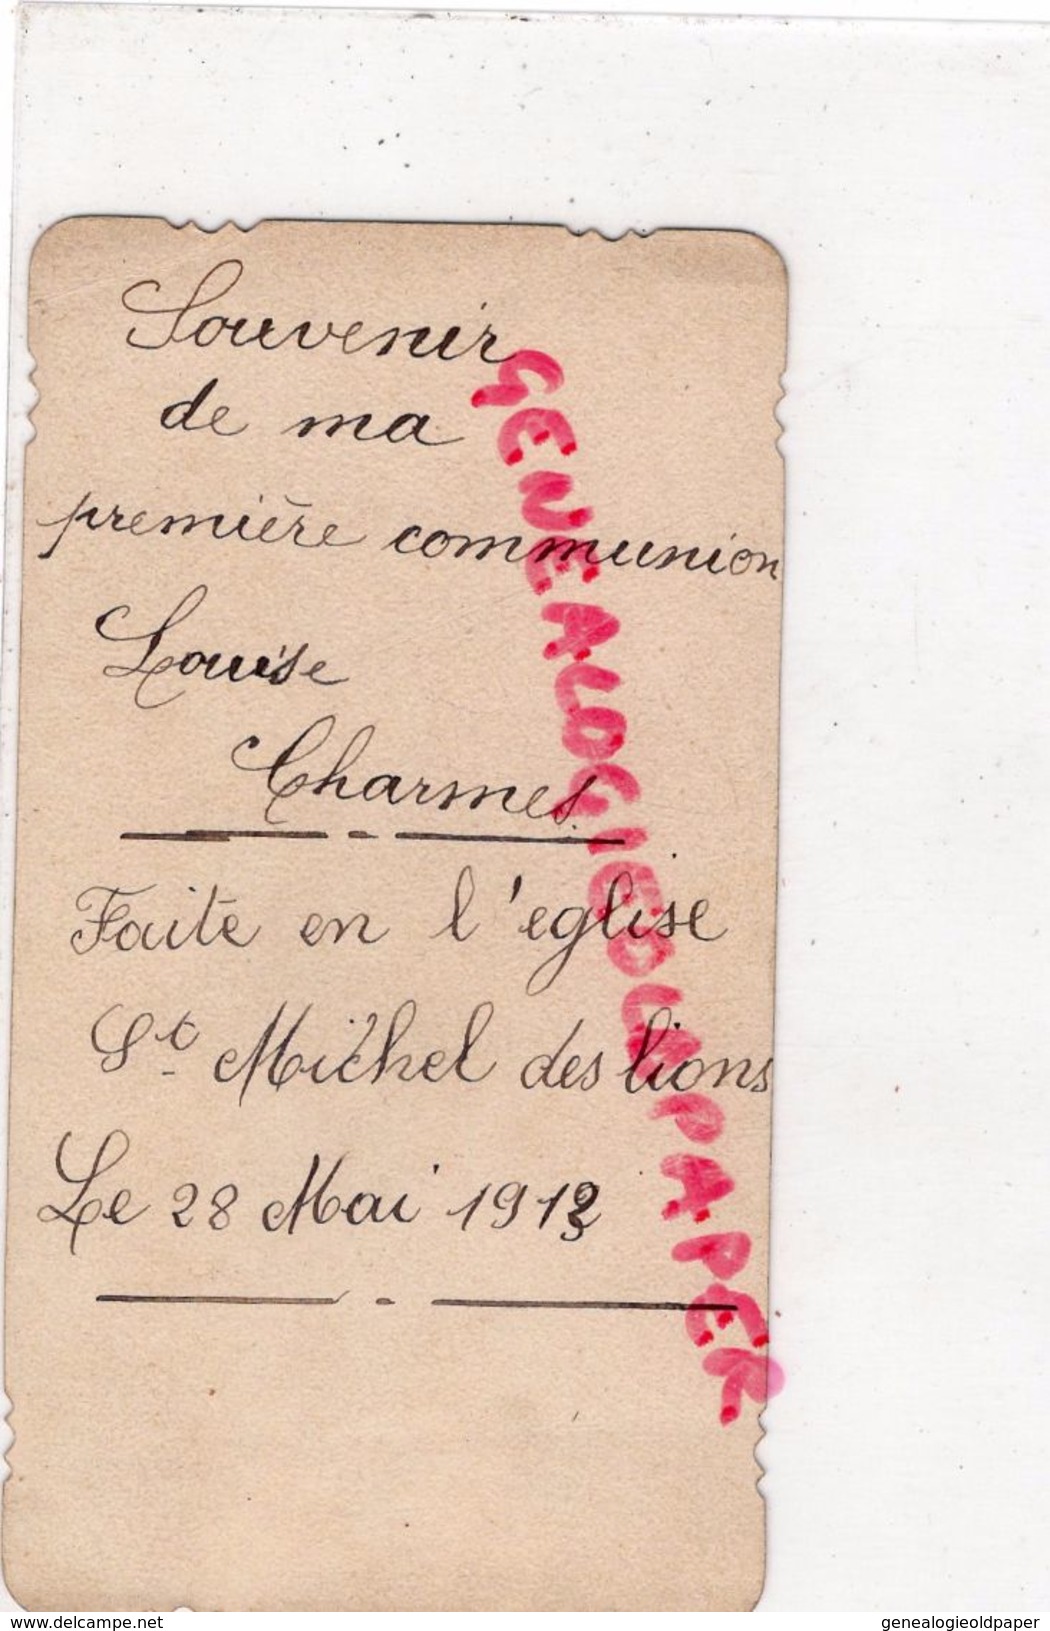 Souvenir
de ma
première communion
Louise
Charmes
Faite en l'eglise
St Michel des lions
Le 28 Mai
GENEALOGIEOLDPAPER
www.delcampe.net
genealogieoldpaper